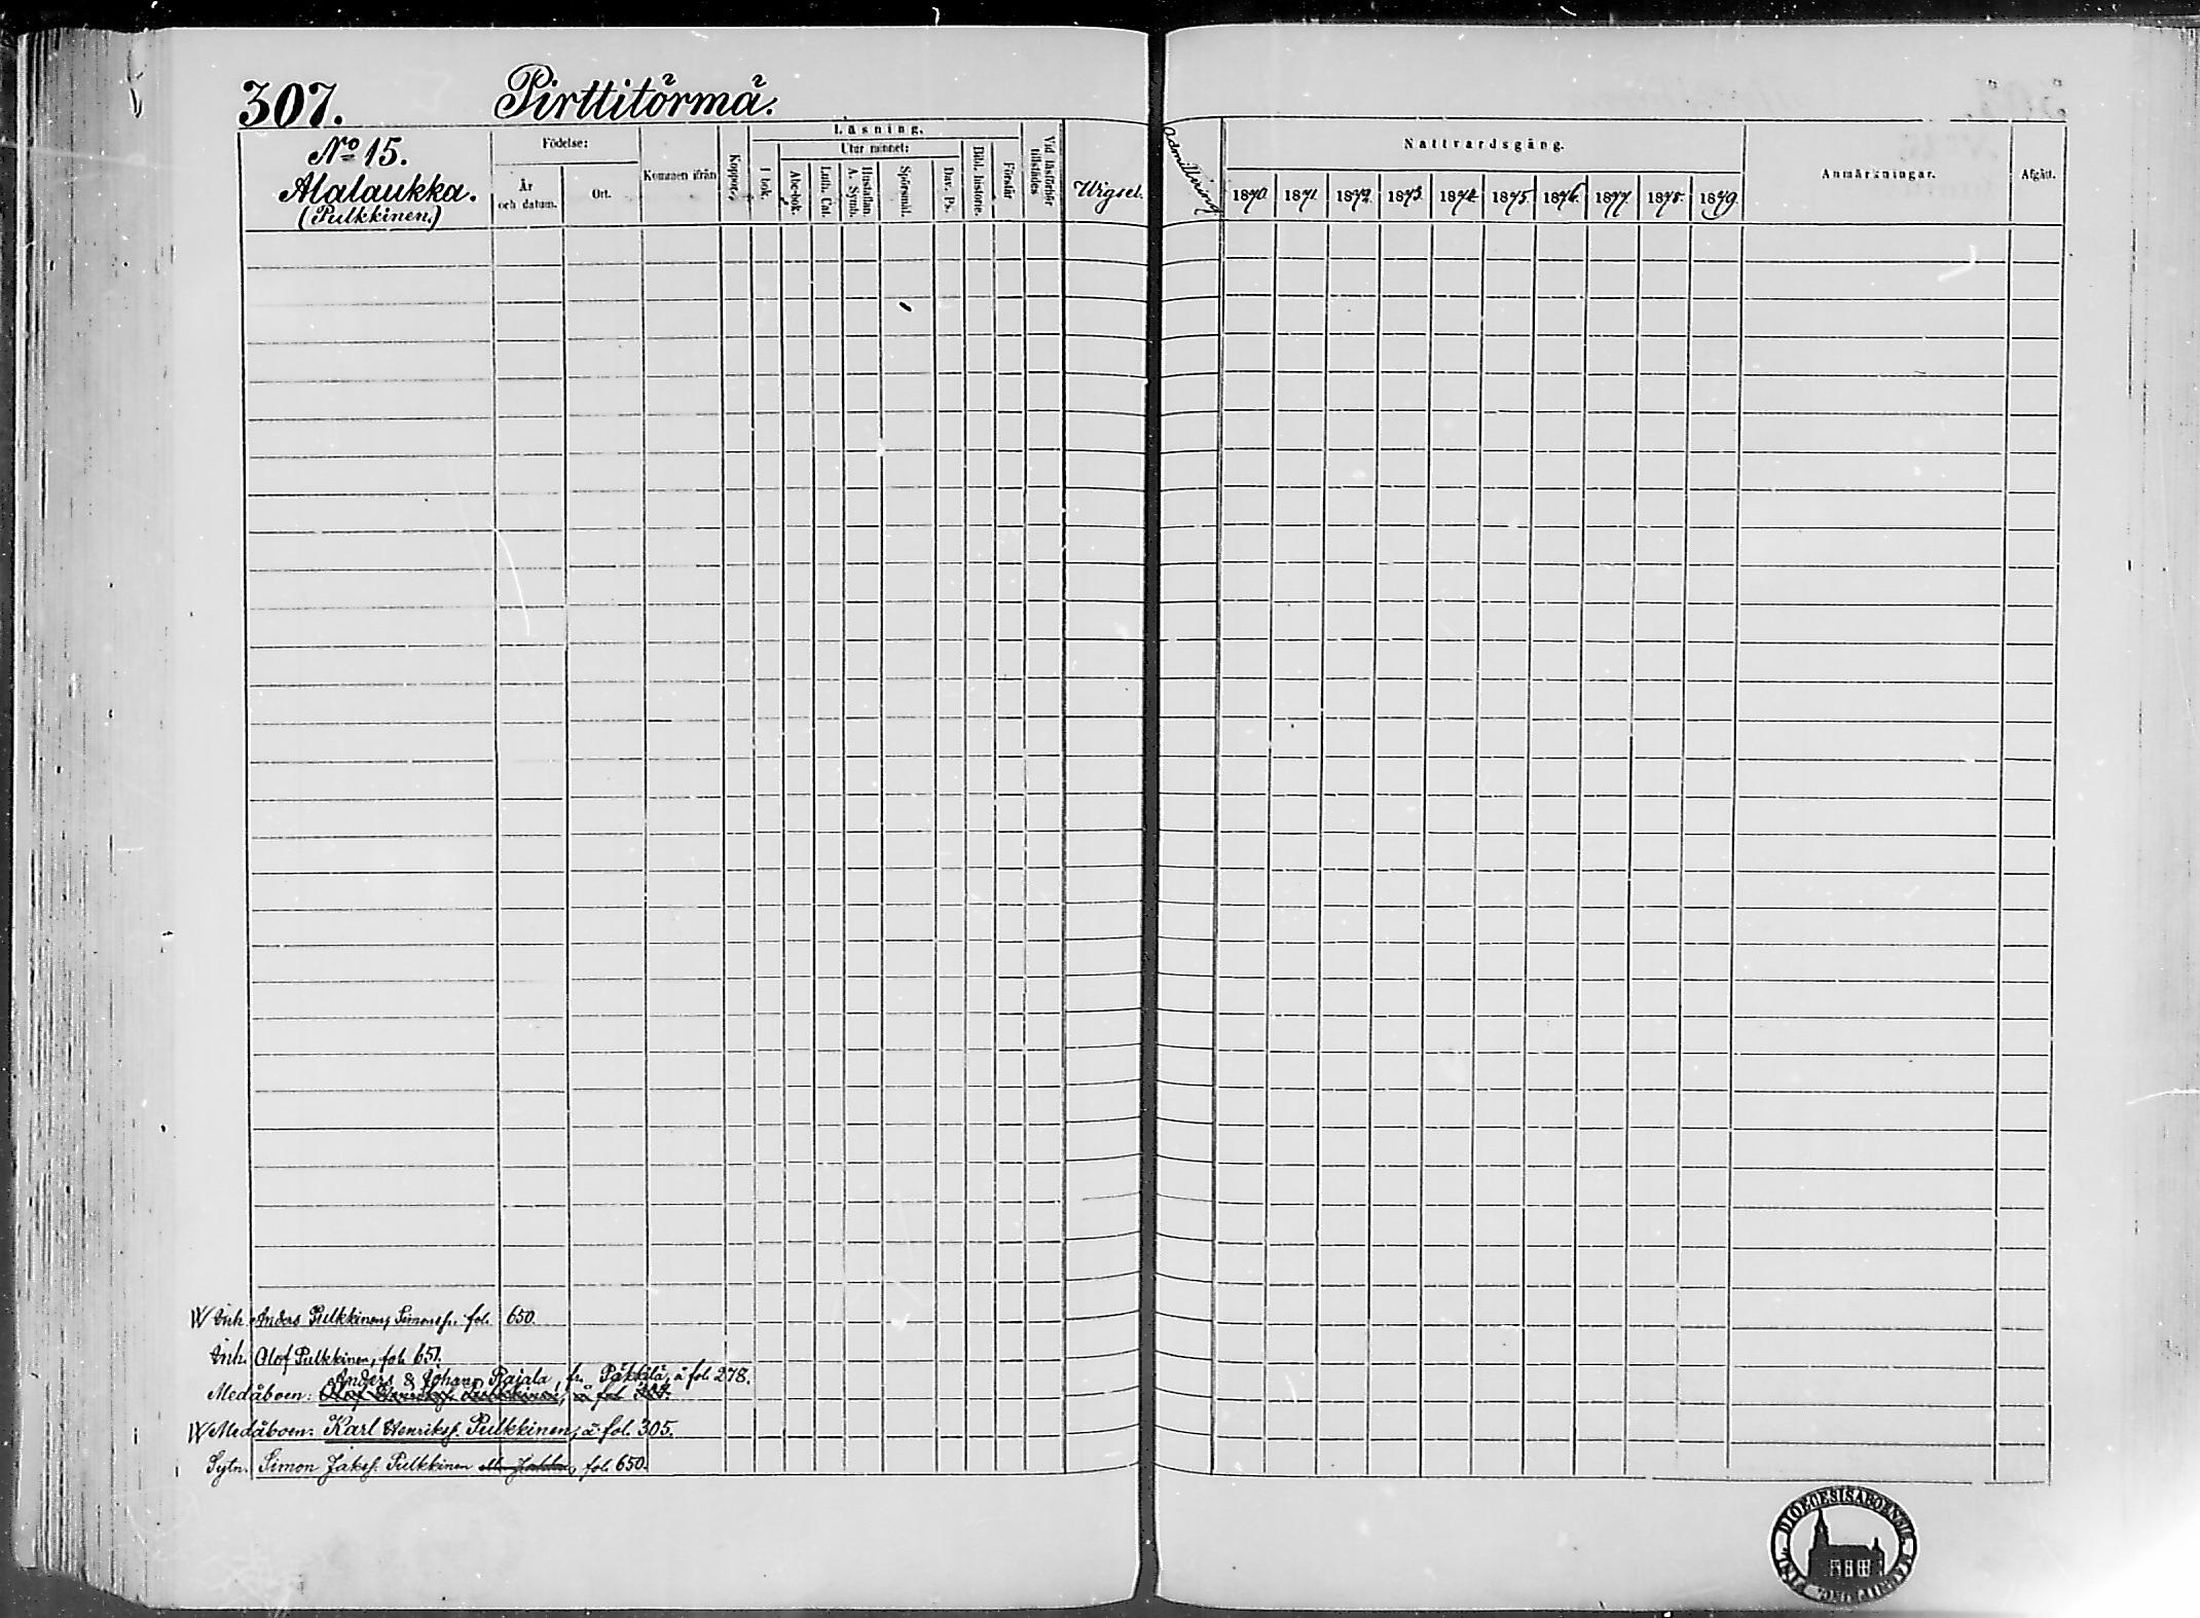 307. Pirttitörmä.
No 15.
Alalaukka.
(Pulkkinen.)
Födelse:
År och datum.
Ort.
Kommen ifrån
Koppor.
Läsning.
I bok.
Utur minnet:
Abc-bok.
Luth. Cat.
Hustaflan. A. Symb.
Spörsmål.
Dav. Ps.
Bibl. historie.
Förstår
Vid läsförhör tillstädes
Wigsel.
Admittering
Nattvardsgång.
1870. 1871. 1872. 1873. 1874. 1875. 1876. 1877. 1878. 1879.
Anmärkningar.
Afgått.
W Inh. Anders Pulkkinen, Simonss. fol. 650.
Inh. Olof Pulkkinen, fol. 651.
Anders & Johan Rajala, fr. Päkkilä, å fol. 278.
Medåboen: Olof Henrikss. Pulkkinen, å fol.
W Medåboen: Karl Henrikss. Pulkkinen, å fol. 305.
Sytn. Simon Jakss. Pulkkinen fol. 650.
DIOECESIS ABOENSIS